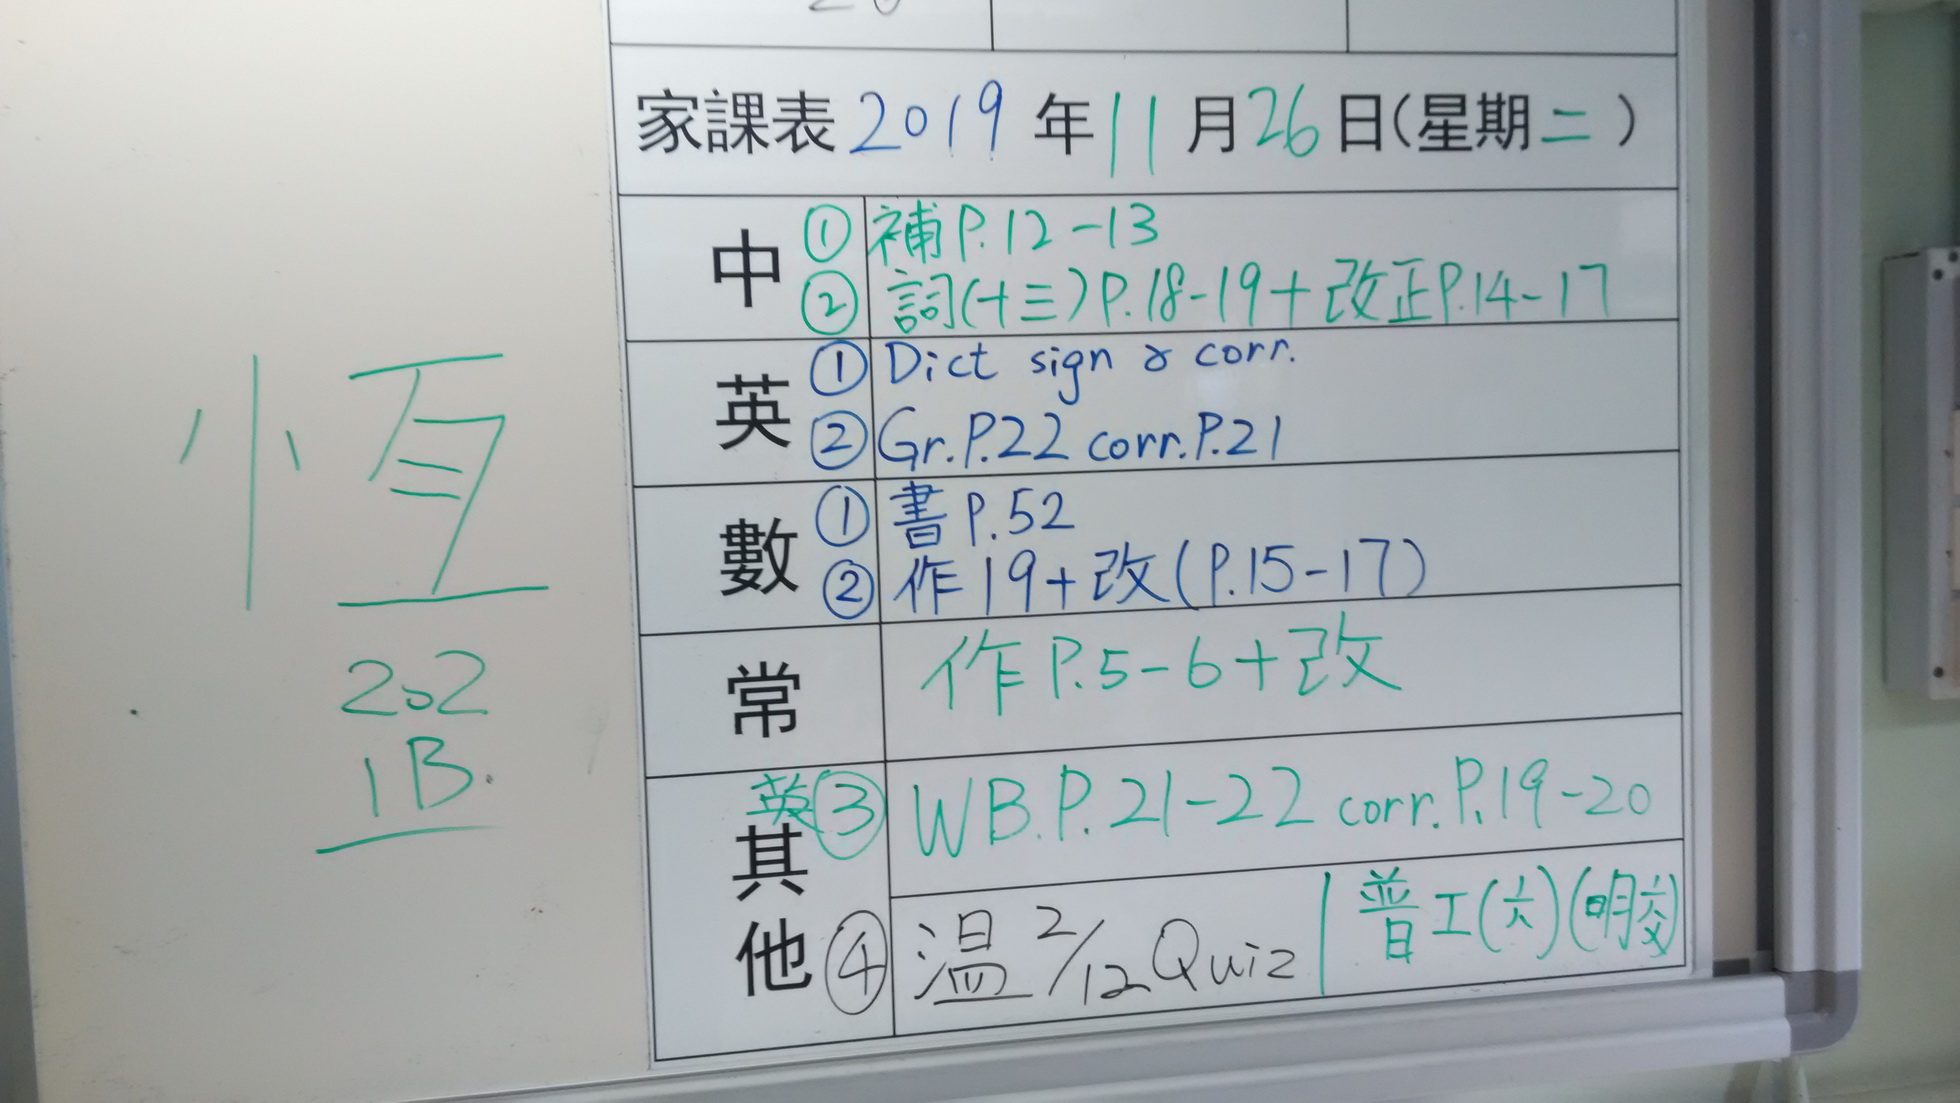 家課表 2019 年 11 月 26 日(星期二)
中 ① 補 P.12-13
② 詞(十三) P.18-19+改正P.14-17
英 ① Dict sign & corr.
② Gr.P.22 corr.P.21
數 ① 書 P.52
② 作 19+改(P.15-17)
常 作 P.5-6+改
其他
英③ WB.P.21-22 corr.P.19-20
④ 温 2/12 Quiz | 普工(六)(明交)
小
202
1B.